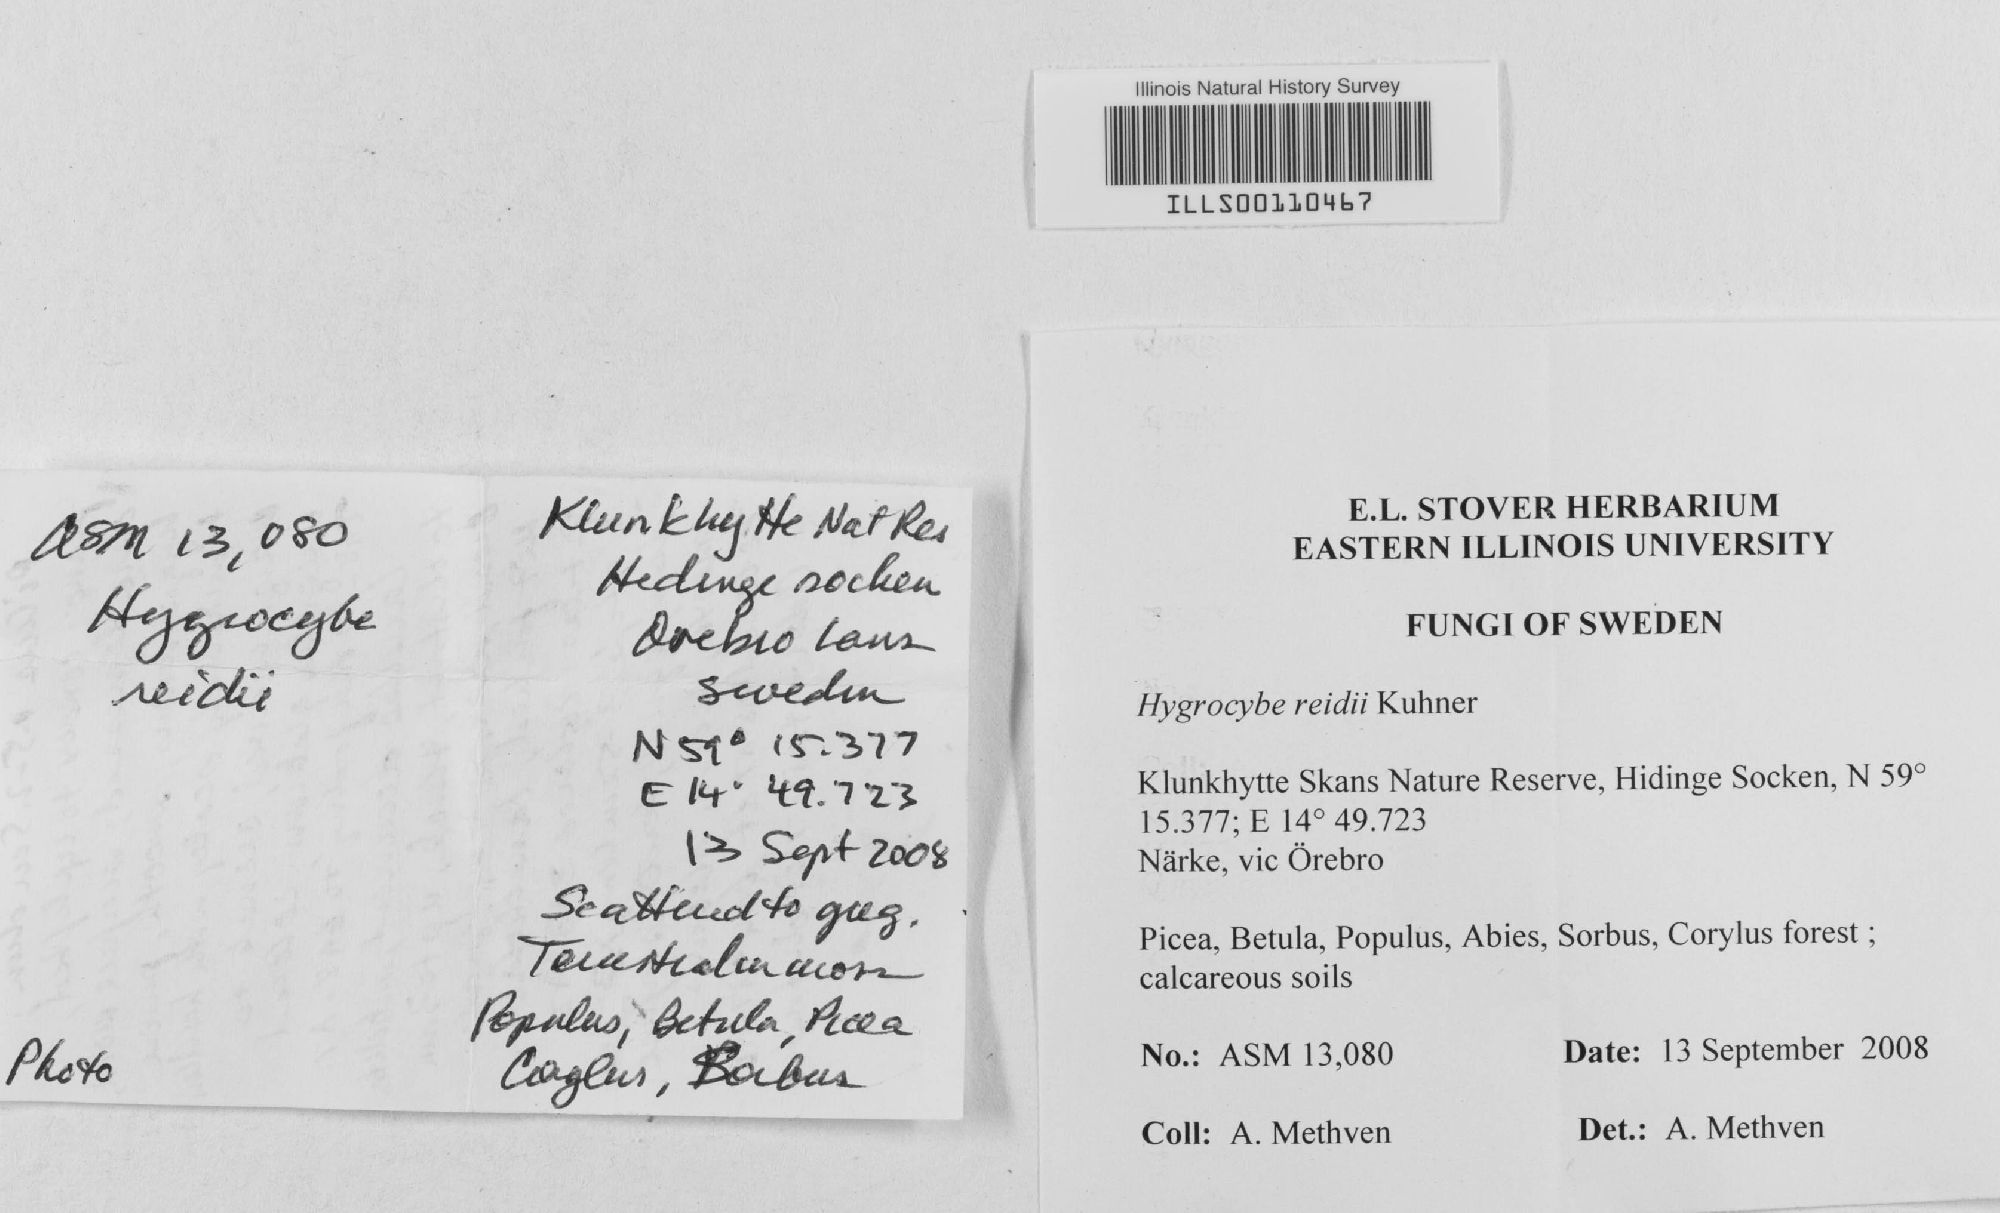 Illinois Natural History Survey
ILLS00110467
ASM 13,080
Hygrocybe
reidii
Photo
Klunkhytte Nat Res
Hedinge socken
Orebro Lans
Sweden
N 59° 15.377
E 14° 49.723
13 Sept 2008
Scattered to greg.
Populus, Betula, Picea
Corylus, Sorbus
E.L. STOVER HERBARIUM
EASTERN ILLINOIS UNIVERSITY
FUNGI OF SWEDEN
Hygrocybe reidii Kuhner
Klunkhytte Skans Nature Reserve, Hidinge Socken, N 59°
15.377; E 14° 49.723
Närke, vic Örebro
Picea, Betula, Populus, Abies, Sorbus, Corylus forest ;
calcareous soils
No.: ASM 13,080 Date: 13 September 2008
Coll: A. Methven Det.: A. Methven